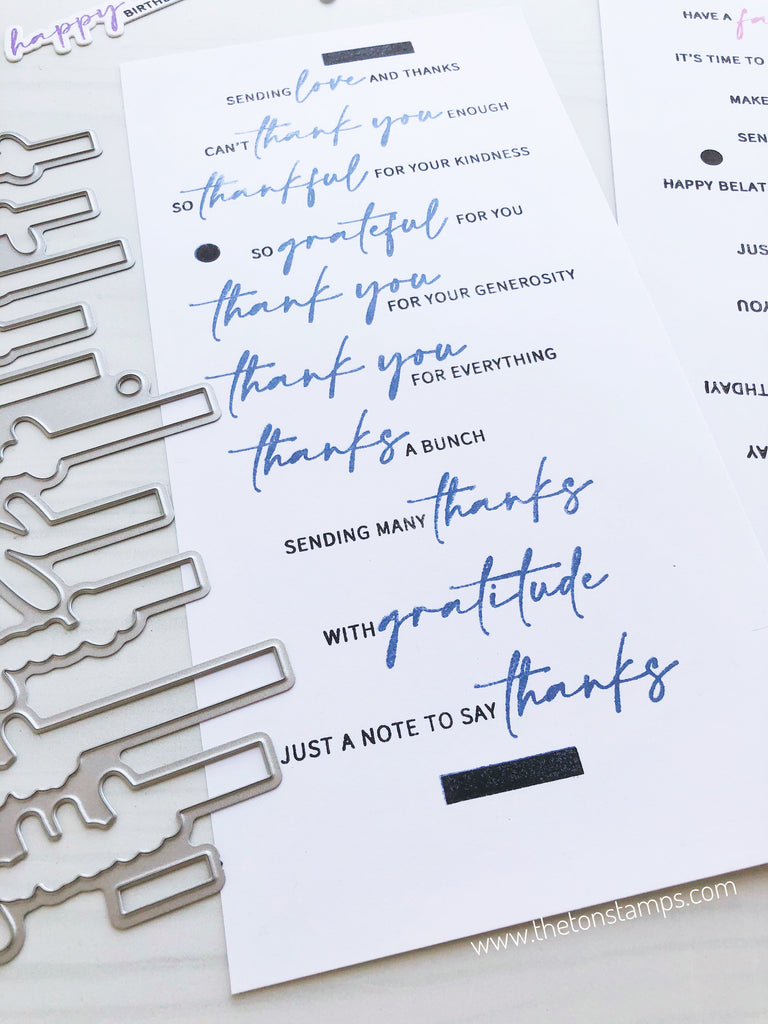 happy BIRTH
SENDING love AND THANKS
CAN'T thank you ENOUGH
SO thankful FOR YOUR KINDNESS
SO grateful FOR YOU
thank you FOR YOUR GENEROSITY
thank you FOR EVERYTHING
thanks A BUNCH
SENDING MANY thanks
WITH gratitude
JUST A NOTE TO SAY thanks
HAVE A fa
IT'S TIME TO
MAKE
SEN
HAPPY BELAT
JUS
YOU
THDAY!
AY
www.thetonstamps.com